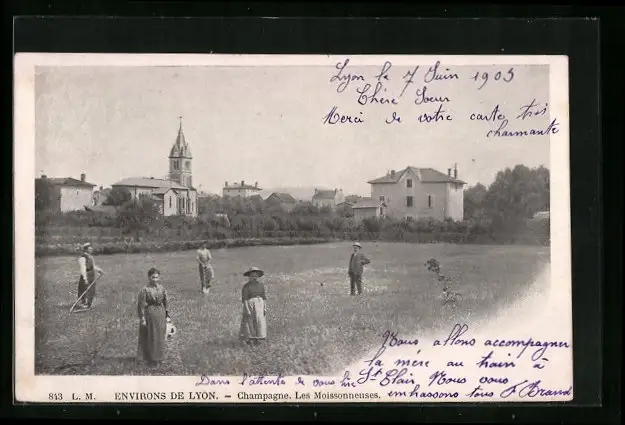 Lyon le 7 Juin 1903
Chère Soeur
Merci de votre carte très
charmante
Nous allons accompagner
la mère au train à
Dans l'attente de vous lire St Clair, Nous vous
embrassons tous F. Brand
843 L. M. ENVIRONS DE LYON. – Champagne. Les Moissonneuses.